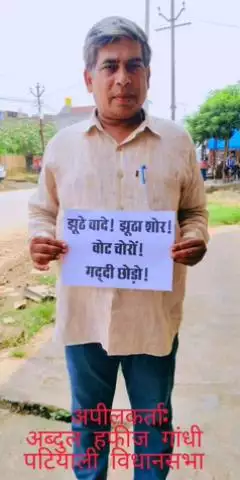 झूठे वादे! झूठा शोर!
वोट चोरों!
गद्दी छोड़ो!
अपीलकर्ताः
अब्दुल हफीज गांधी
पटियाली विधानसभा